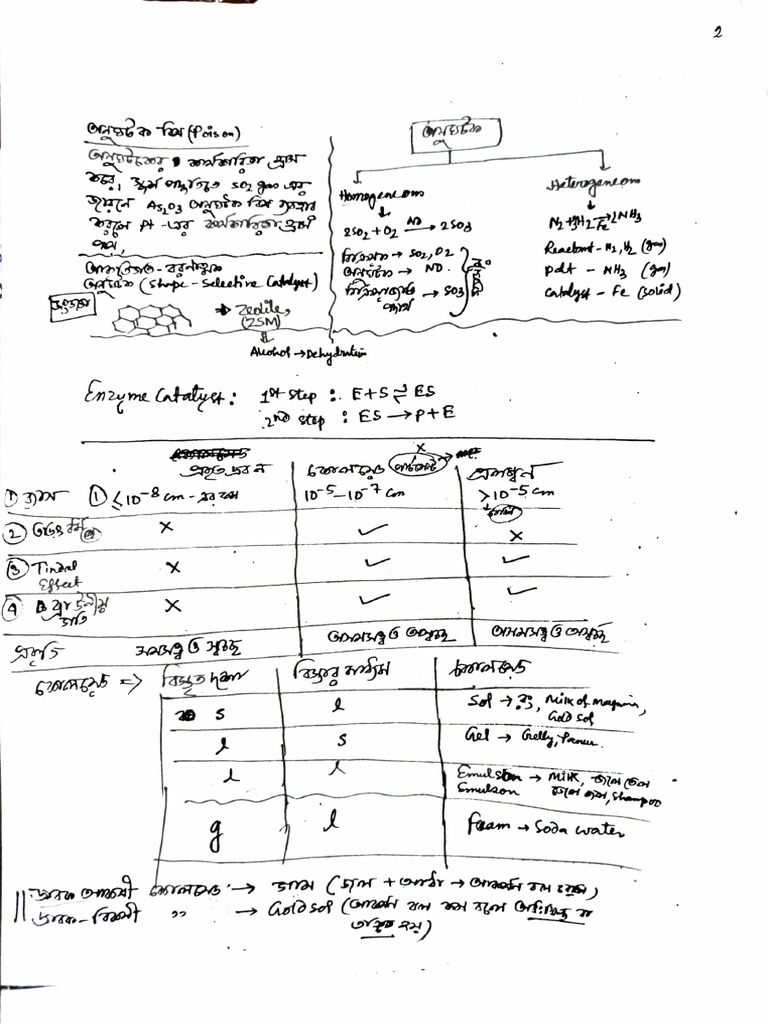 2
অনুঘটক বিষ (Poison)
অনুঘটকের কার্যকারিতা হ্রাস
করে। স্পর্শ পদ্ধতিতে SO2 gas এর
As2O3 অনুঘটক বিষ
করলে Pt-এর কার্যকারিতা হ্রাস
পায়,
অনুঘটক (Shape-Selective Catalyst)
→ Zeolite,
(ZSM)
Alcohol → Dehydration
অনুঘটক
Homogeneous
2SO2 + O2 NO → 2SO3
বিক্রিয়ক → SO2, O2
অনুঘটক → NO.
→ SO3
পদার্থ
Heterogeneous
N2+3H2 ⇌ Fe 2NH3
Reactant - N2, H2 (gas)
Pdt - NH3 (gas)
Catalyst - Fe (solid)
Enzyme Catalyst: 1st step : E+S ⇌ ES
2nd step : ES → P+E
প্রকৃত দ্রবণ কোলয়েড প্রলম্বন
① ব্যাস ① ≤10-8 cm-এর কম 10-5-10-7 cm >10-5 cm
② × ✓ ×
③ Tindal Effect × ✓ ✓
④ ব্রাউনীয় গতি × ✓ ✓
প্রকৃতি সমসত্ত্ব ও স্বচ্ছ অসমসত্ত্ব ও অস্বচ্ছ অসমসত্ত্ব ও অস্বচ্ছ
কোলয়েড => বিস্তৃত দশা বিস্তার মাধ্যম কোলয়েড
s l Sol → রং, Milk of magnesia,
Gold sol
l s Gel → Gelly, Paneer
l l Emulsion → Milk,
Emulson Shampoo
g l Foam → Soda water
দ্রাবক আকর্ষী কোলয়েড → (জল + আঠা → আকর্ষণ বল)
দ্রাবক-বিকর্ষী " → Gold sol (আকর্ষণ বল কম বলে
হয়)